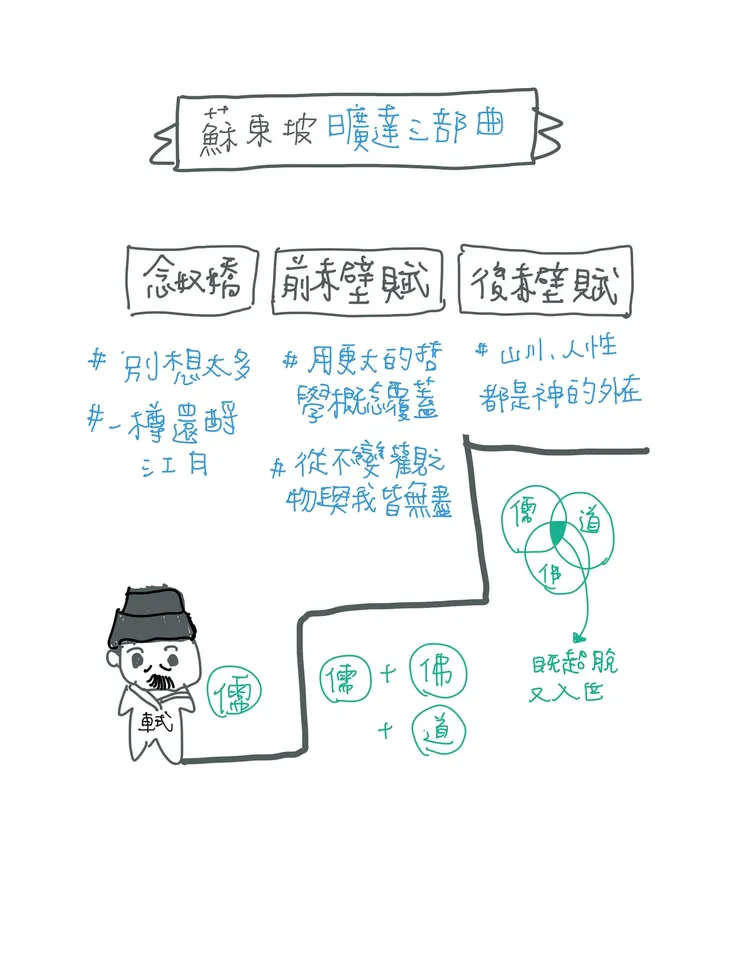 蘇東坡 曠達三部曲
念奴嬌
# 別想太多
# 一樽還酹
江月
儒
前赤壁賦
# 用更大的哲
學概念覆蓋
# 從不變觀之
物與我皆無盡
儒 + 佛
+ 道
後赤壁賦
# 山川、人性
都是神的外在
儒 道
佛
既超脫
又入世
軾